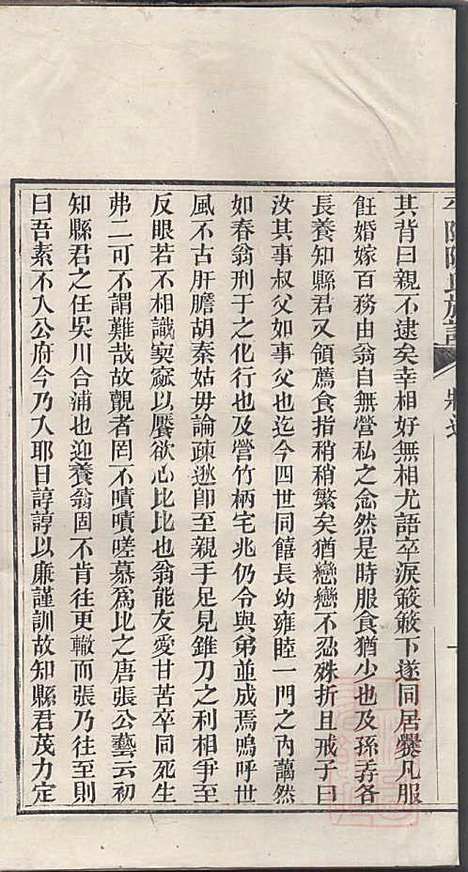 其背曰親不逮矣幸相好無相尤語卒淚簌簌下遂同居爨凡服
飪婚嫁百務由翁自無營私之念然是時服食猶少也及孫孨各
長養知縣君又領薦食指稍稍繁矣猶戀戀不忍殊折且戒子曰
汝其事叔父如事父也迄今四世同饎長幼雍睦一門之內藹然
如春翁刑于之化行也及營竹柄宅兆仍令與弟並成焉嗚呼世
風不古肝膽胡秦姑毋論疎逖卽至親手足見錐刀之利相爭至
反眼若不相識寔寙以饜欲心比比也翁能友愛甘苦卒同死生
弗二可不謂難哉故覿者罔不嘖嘖嗟慕爲比之唐張公藝云初
知縣君之任吳川合浦也迎養翁固不肯往更轍而張乃往至則
曰吾素不入公府今乃入耶日諄諄以廉謹訓故知縣君茂力定
陳氏族譜